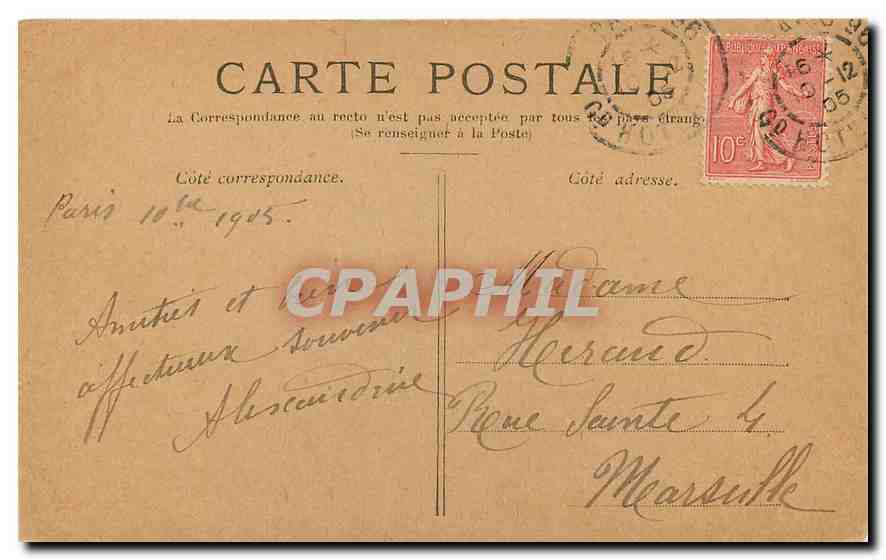 CARTE POSTALE
La Correspondance au recto n'est pas acceptée par tous les pays étrang
(Se renseigner à la Poste)
Côté correspondance.
Côté adresse.
RÉPUBLIQUE FRANÇAISE
10c
Paris 10bre 1905.
Amitiés et
affectueux souvenir
Alexandrine
Madame
Heraud.
Rue Sainte 4.
Marseille
CPAPHIL